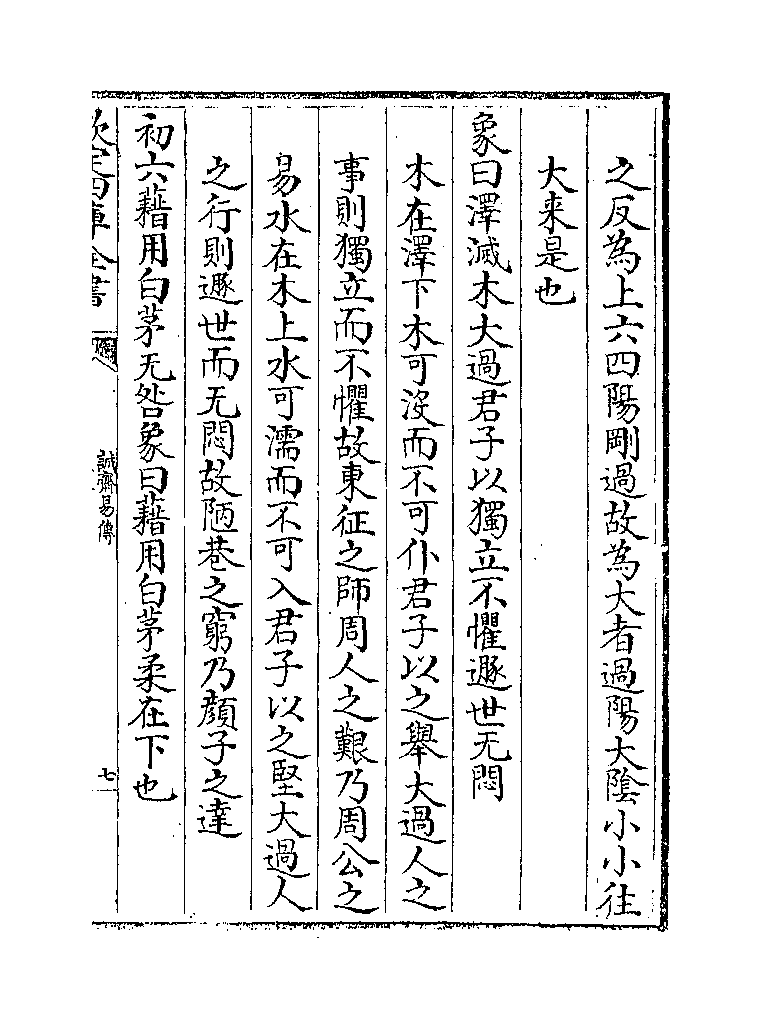 之反為上六四陽剛過故為大者過陽大隂小小往
大来是也
象曰澤滅木大過君子以獨立不懼遯世无悶
木在澤下木可没而不可仆君子以之舉大過人之
事則獨立而不懼故東征之師周人之艱乃周公之
易水在木上水可濡而不可入君子以之堅大過人
之行則遯世而无悶故陋巷之窮乃顔子之達
初六藉用白茅无咎象曰藉用白茅柔在下也
欽定四庫全書
誠齋易傳
七